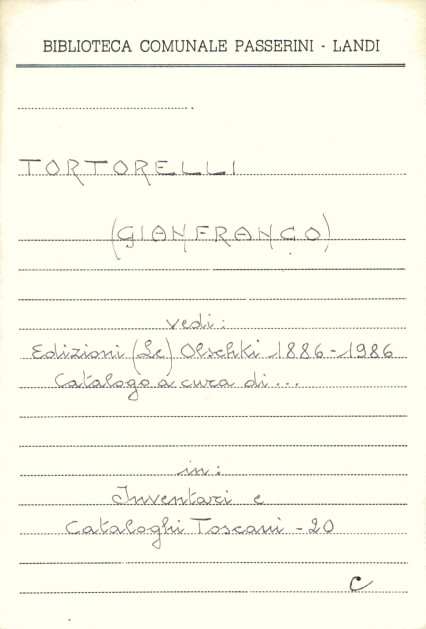 BIBLIOTECA COMUNALE PASSERINI - LANDI
TORTORELLI
(GIANFRANCO)
vedi:
Edizioni (Le) Olschki 1886-1986
Catalogo a cura di...
in:
Inventari e
Cataloghi Toscani - 20
C